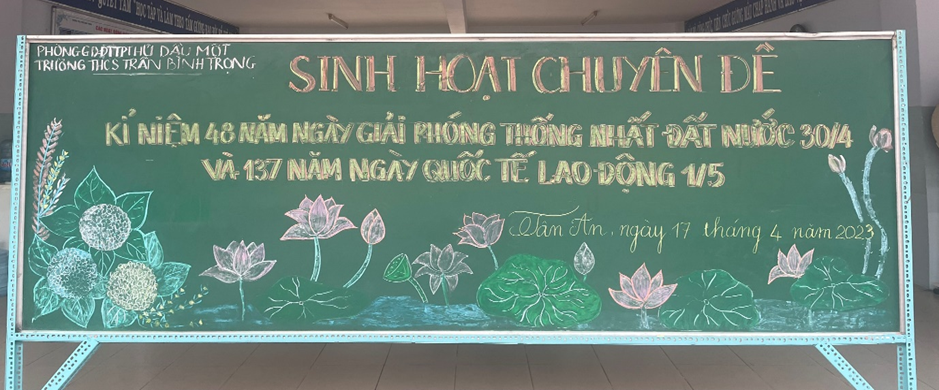 QUYẾT TÂM "HỌC TẬP VÀ LÀM THEO TẤM GƯƠNG ĐẠO
PHÒNG GDĐTTPTHỦ DẦU MỘT
TRƯỜNG THCS TRẦN BÌNH TRỌNG
SINH HOẠT CHUYÊN ĐỀ
KỈ NIỆM 48 NĂM NGÀY GIẢI PHÓNG THỐNG NHẤT ĐẤT NƯỚC 30/4
VÀ 137 NĂM NGÀY QUỐC TẾ LAO ĐỘNG 1/5
Tân An, ngày 17 tháng 4 năm 2023